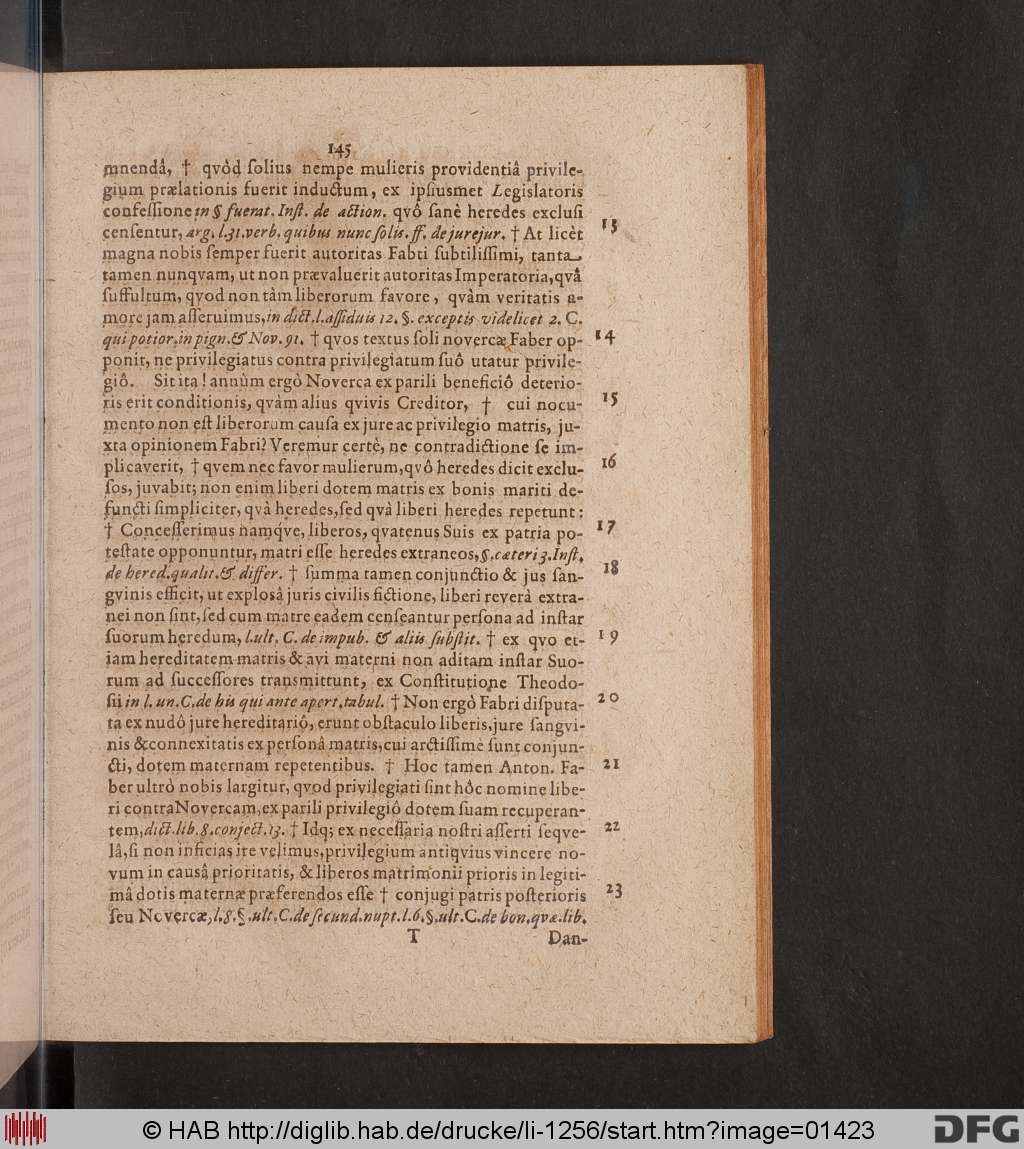 145
mnendâ, † qvòd ſolius nempe mulieris providentiâ privile-
gium prælationis fuerit inductum, ex ipſiusmet Legislatoris
confeſſione in § fuerat. Inſt. de action. qvô ſanè heredes excluſi
cenſentur, arg. l.31.verb. quibus nunc ſolis. ff. de jurejur. † At licèt 13
magna nobis ſemper fuerit autoritas Fabti ſubtiliſſimi, tanta
tamen nunqvam, ut non prævaluerit autoritas Imperatoria, qvâ
ſuffultum, qvod non tàm liberorum favore, qvàm veritatis a-
more jam aſſeruimus, in dict. l. aſſiduis 12. §. exceptis videlicet 2. C.
qui potior. in pign. & Nov. 91. † qvos textus ſoli novercæ Faber op- 14
ponit, ne privilegiatus contra privilegiatum ſuô utatur privile-
giô. Sit ita! annùm ergò Noverca ex parili beneficiô deterio-
ris erit conditionis, qvàm alius qvivis Creditor, † cui nocu- 15
mento non eſt liberorum cauſa ex jure ac privilegio matris, ju-
xta opinionem Fabri? Veremur certè, ne contradictione ſe im-
plicaverit, † qvem nec favor mulierum, qvô heredes dicit exclu- 16
ſos, juvabit; non enim liberi dotem matris ex bonis mariti de-
functi ſimpliciter, qvà heredes, ſed qvà liberi heredes repetunt:
† Conceſſerimus namq́ve, liberos, qvatenus Suis ex patria po- 17
teſtate opponuntur, matri eſſe heredes extraneos, §. cæteri 3. Inſt.
de hered. qualit. & differ. † ſumma tamen conjunctio & jus ſan- 18
gvinis efficit, ut explosâ juris civilis fictione, liberi reverà extra-
nei non ſint, ſed cum matre eadem cenſeantur perſona ad inſtar
ſuorum heredum, l. ult. C. de impub. & aliis ſubſtit. † ex qvo et- 19
iam hereditatem matris & avi materni non aditam inſtar Suo-
rum ad ſucceſſores transmittunt, ex Conſtitutione Theodo-
ſii in l. un. C. de his qui ante apert. tabul. † Non ergò Fabri diſputa- 20
ta ex nudô jure hereditariô, erunt obſtaculo liberis, jure ſangvi-
nis & connexitatis ex perſonâ matris, cui arctiſſimè ſunt conjun-
cti, dotem maternam repetentibus. † Hoc tamen Anton. Fa- 21
ber ultrò nobis largitur, qvod privilegiati ſint hôc nomine libe-
ri contra Novercam, ex parili privilegiô dotem ſuam recuperan-
tem, dict. lib. 8. conject. 13. † Idq; ex neceſſaria noſtri aſſerti ſeqve- 22
lâ, ſi non inficias ire velimus, privilegium antiqvius vincere no-
vum in causâ prioritatis, & liberos matrimonii prioris in legiti-
mâ dotis maternæ præferendos eſſe † conjugi patris poſterioris 23
ſeu Novercæ, l. 8. §. ult. C. de ſecund. nupt. l. 6. §. ult. C. de bon. qvæ. lib.
T Dan-
© HAB http://diglib.hab.de/drucke/li-1256/start.htm?image=01423 DFG